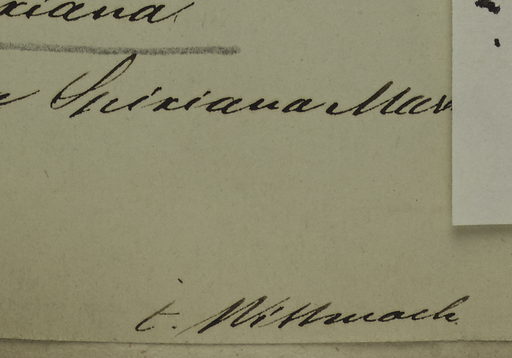 xiana
Spixiana Mar
t. Wittmack